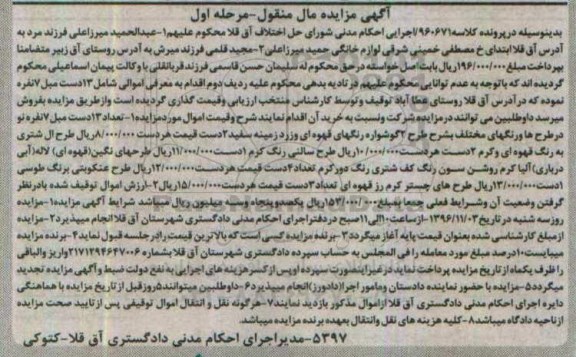 آگهی مزایده مال منقول-مرحله اول
بدینوسیله در پرونده کلاسه ۹۶۰۶۷۱/اجرایی احکام مدنی شورای حل اختلاف آق قلا محکوم علیهم۱-عبدالحمید میرزاعلی فرزند مرد به
آدرس آق قلا ابتدای خ مصطفی خمینی شرقی لوازم خانگی حمید میرزاعلی۲-مجید قلمی فرزند میرش به آدرس روستای آق زبیر متضامنا
بپرداخت مبلغ۱۹۶/۰۰۰/۰۰۰ریال بابت اصل خواسته در حق محکوم له سلیمان حسن قاسمی فرزند قربانقلی با وکالت پیمان اسماعیلی محکوم
گردیده اند که با توجه به عدم توانایی محکوم علیهم در تادیه بدهی محکوم علیه ردیف دوم اقدام به معرفی اموالی شامل ۱۳دست مبل ۷نفره
نموده که در آدرس آق قلا روستای عطا آباد توقیف و توسط کارشناس منتخب ارزیابی و قیمت گذاری گردیده است و از طریق مزایده بفروش
میرسد داوطلبین می توانند در مزایده شرکت و نسبت به خرید آن اقدام نمایند شرح و قیمت اموال مورد مزایده۱-تعداد۱۳دست مبل ۷نفره نو
در طرح ها و رنگهای مختلف بشرح طرح ۲گوشواره رنگهای قهوه ای و زرد زمینه سفید۲دست قیمت هر دست ۸/۰۰۰/۰۰۰ریال طرح ال شتری
به رنگ قهوه ای و کرم ۲دست هر دست۱۰/۰۰۰/۰۰۰ریال طرح سالنی رنگ کرم ۱دست۱۱/۰۰۰/۰۰۰ریال طرحهای نگین(قهوه ای) لاله(آبی
درباری) آلیا کرم روشن سون رنگ کف شتری رنگ دور کرم تعداد۴دست قیمت هر دست۱۲/۰۰۰/۰۰۰ریال طرح عنکبوتی برنگ طوسی
۱دست۱۳/۰۰۰/۰۰۰ریال طرح های چستر کرم رز قهوه ای تعداد۳دست قیمت هر دست۱۵/۰۰۰/۰۰۰ریال۲-ارزش اموال توقیف شده با در نظر
گرفتن وضعیت آن و شرایط فعلی جمعا بمبلغ۱۵۳/۰۰۰/۰۰۰ریال یکصد و پنجاه و سه میلیون ریال میباشد شرایط آگهی مزایده۱-مزایده
روز سه شنبه در تاریخ ۱۳۹۶/۱۱/۰۳-از ساعت۱۰الی۱۱صبح در دفتر اجرای احکام مدنی دادگستری شهرستان آق قلا انجام میپذیرد۲-مزایده
از مبلغ کارشناسی شده بعنوان قیمت پایه آغاز میگردد۳-برنده مزایده کسی است که بالاترین قیمت را در جلسه قبول نماید۴-برنده مزایده
میبایست۱۰درصد مبلغ مورد معامله را فی المجلس به حساب سپرده دادگستری شهرستان آق قلا بشماره ۲۱۷۱۲۹۴۶۴۷۰۰۶واریز و الباقی
را ظرف یکماه از تاریخ مزایده پرداخت نماید در غیر اینصورت سپرده او پس از کسر هزینه های اجرایی به نفع دولت ضبط و آگهی مزایده تجدید
میگردد۵-مزایده با حضور نماینده دادستان و مامور اجرا(دادورز) انجام میپذیرد۶-داوطلبین میتوانند۵روز قبل از تاریخ مزایده با هماهنگی
دایره اجرای احکام مدنی دادگستری آق قلا از اموال مذکور بازدید نمایند۷-هرگونه نقل و انتقال اموال توقیفی پس از تایید صحت مزایده
از ناحیه دادگاه میباشد۸-کلیه هزینه های نقل و انتقال بعهده برنده مزایده میباشد.
۵۳۹۷-مدیر اجرای احکام مدنی دادگستری آق قلا-کتوکی